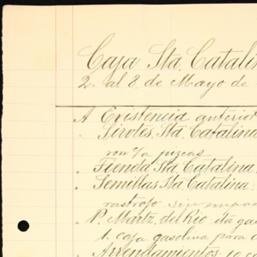 Caja Sta Catalin
2. al 8 de Mayo de
A Existencia anterior
" Jirotes, Sta Catalina
" Tienda Sta Catalina
" Semillas Sta Catalina
rastrojo
" P. Martz. del Rio
1. caja gasolina para
" Arrendamientos